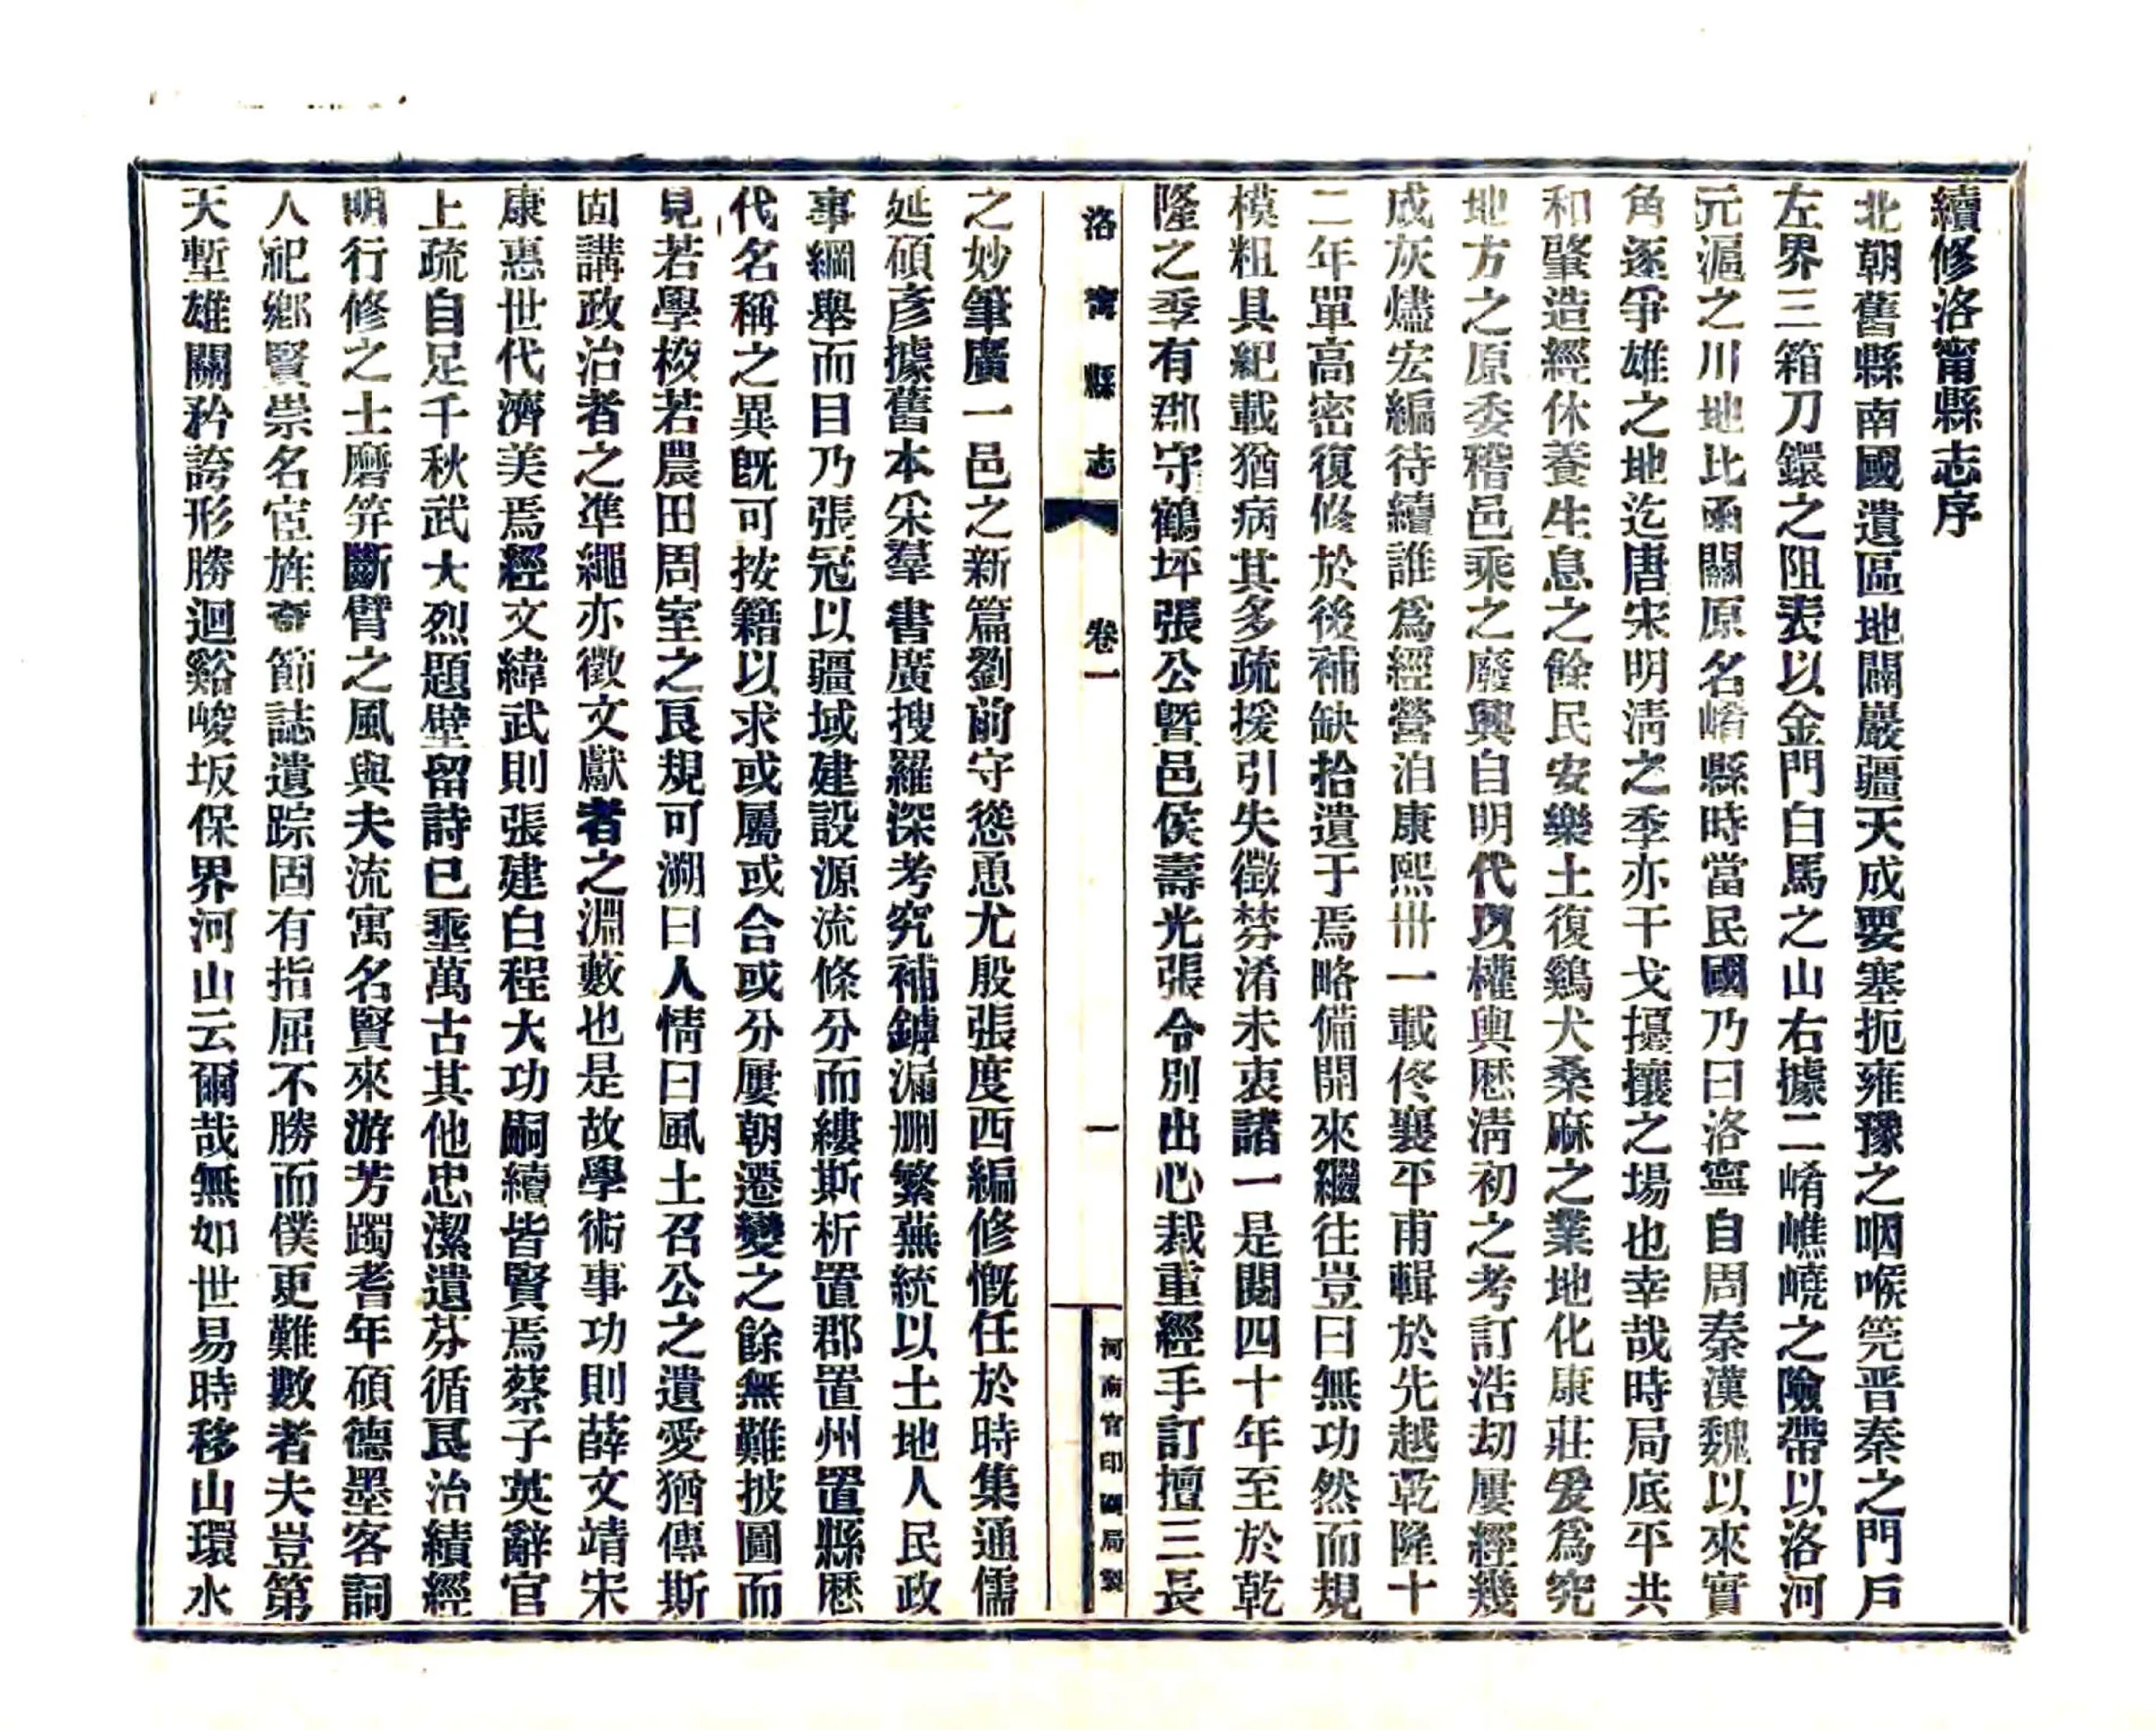 續修洛甯縣志序
北朝舊縣南國遺區地闢巖疆天成要塞扼雍豫之咽喉筦晋秦之門戶
左界三箱刀鐶之阻表以金門白馬之山右據二崤嶕嶢之險帶以洛河
元滬之川地比函關原名崤縣時當民國乃曰洛寧自周秦漢魏以來實
角逐爭雄之地迄唐宋明清之季亦干戈擾攘之場也幸哉時局底平共
和肇造經休養生息之餘民安樂土復鷄犬桑麻之業地化康莊爰爲究
地方之原委稽邑乘之廢興自明代以權輿歷清初之考訂浩劫屢經幾
成灰燼宏編待續誰爲經營洎康熙卅一載佟襄平甫輯於先越乾隆十
二年單高密復修於後補缺拾遺于焉略備開來繼往豈曰無功然而規
模粗具紀載猶病其多疏援引失徵棼淆未衷諸一是閱四十年至於乾
隆之季有郡守鶴坪張公曁邑侯壽光張令別出心裁重經手訂擅三長
洛甯縣志 卷一 一 河南官印刷局製
之妙筆廣一邑之新篇劉前守慫恿尤殷張度西編修慨任於時集通儒
延碩彥據舊本采羣書廣搜羅深考究補罅漏删繁蕪統以土地人民政
事綱舉而目乃張冠以疆域建設源流條分而縷斯析置郡置州置縣歷
代名稱之異旣可按籍以求或屬或合或分屢朝遷變之餘無難披圖而
見若學校若農田周室之良規可溯曰人情曰風土召公之遺愛猶傳斯
固講政治者之準繩亦徵文獻者之淵藪也是故學術事功則薛文靖宋
康惠世代濟美焉經文緯武則張建白程大功嗣續皆賢焉蔡子英辭官
上疏自足千秋武大烈題壁留詩已埀萬古其他忠潔遺芬循良治績經
明行修之士磨笄斷臂之風與夫流寓名賢來游芳躅耆年碩德墨客詞
人祀鄉賢崇名宦旌奇節誌遺踪固有指屈不勝而僕更難數者夫豈第
天塹雄關矜誇形勝迴谿峻坂保界河山云爾哉無如世易時移山環水